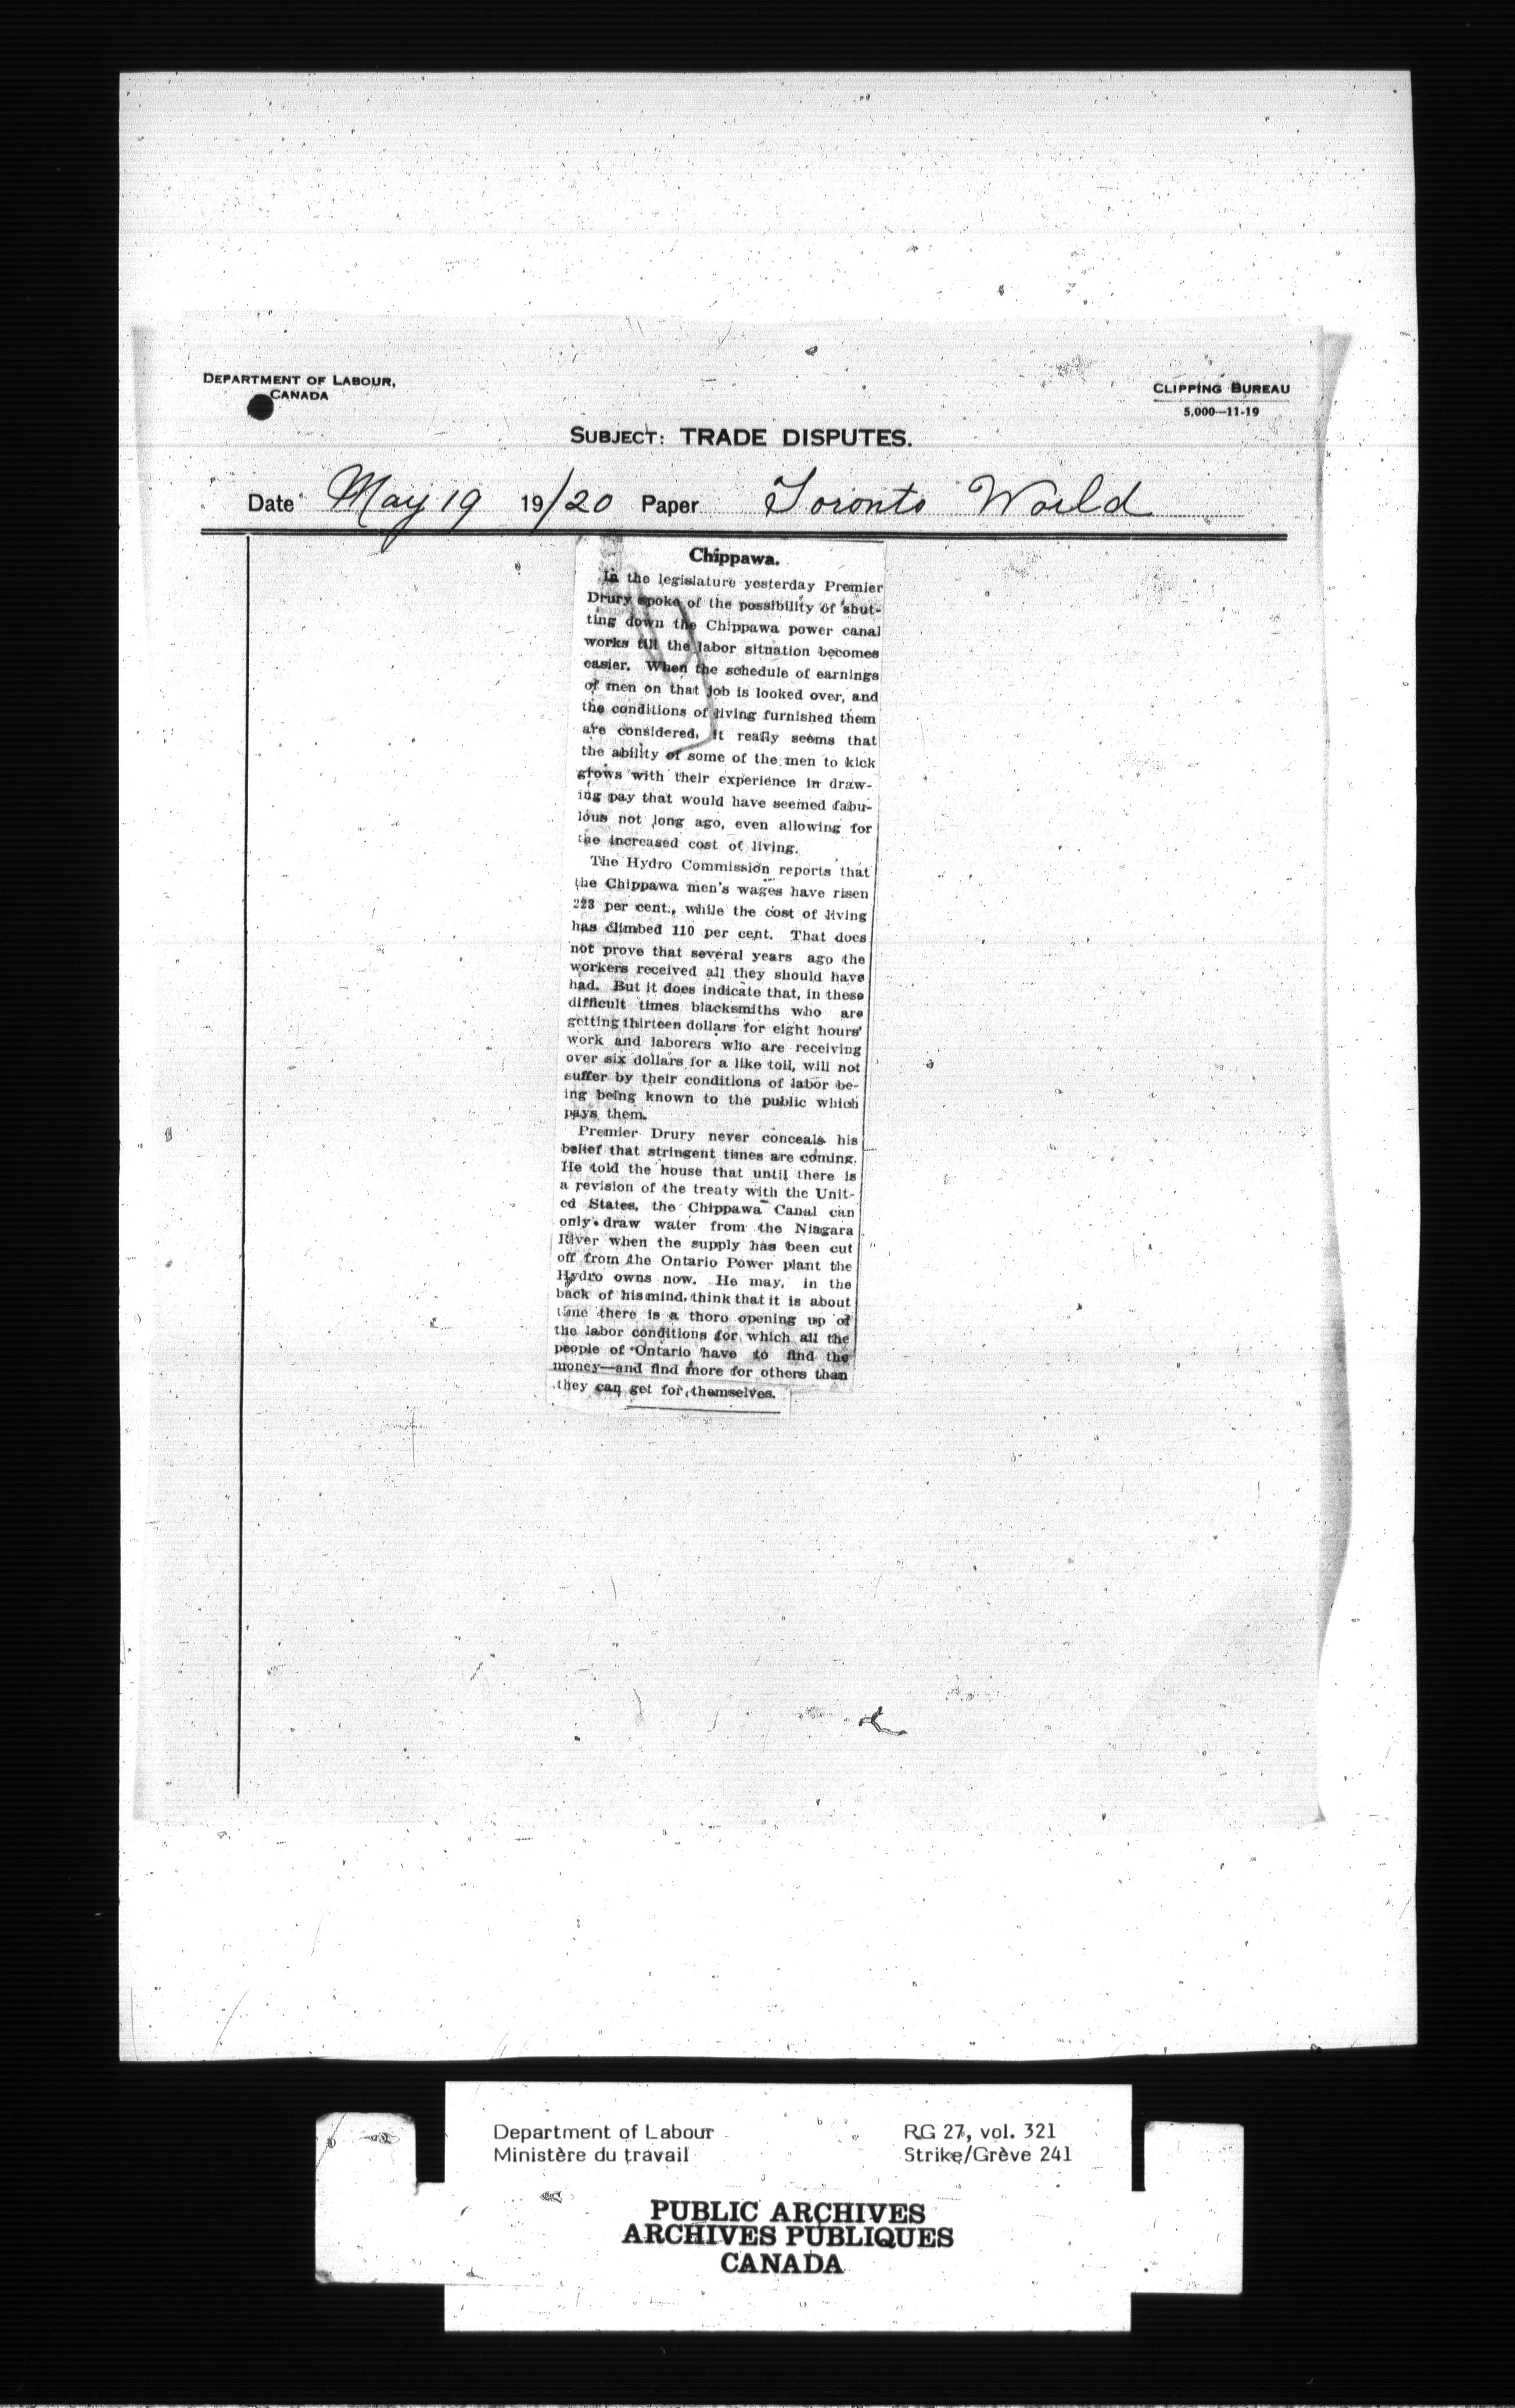 DEPARTMENT OF LABOUR,
CANADA
CLIPPING BUREAU
5,000—11-19
SUBJECT: TRADE DISPUTES.
Date May 19 19/20 Paper Toronto World
Chippawa.
In the legislature yesterday Premier
Drury spoke of the possibility of shut-
ting down the Chippawa power canal
works till the labor situation becomes
easier. When the schedule of earnings
of men on that job is looked over, and
the conditions of living furnished them
are considered, it really seems that
the ability of some of the men to kick
grows with their experience in draw-
ing pay that would have seemed fabu-
lous not long ago, even allowing for
the increased cost of living.
The Hydro Commission reports that
the Chippawa men's wages have risen
223 per cent., while the cost of living
has climbed 110 per cent. That does
not prove that several years ago the
workers received all they should have
had. But it does indicate that, in these
difficult times blacksmiths who are
getting thirteen dollars for eight hours'
work and laborers who are receiving
over six dollars for a like toil, will not
suffer by their conditions of labor be-
ing being known to the public which
pays them.
Premier Drury never conceals his
belief that stringent times are coming.
He told the house that until there is
a revision of the treaty with the Unit-
ed States, the Chippawa Canal can
only draw water from the Niagara
River when the supply has been cut
off from the Ontario Power plant the
Hydro owns now. He may, in the
back of his mind, think that it is about
time there is a thoro opening up of
the labor conditions for which all the
people of Ontario have to find the
money—and find more for others than
they can get for themselves.
Department of Labour
Ministère du travail
RG 27, vol. 321
Strike/Grève 241
PUBLIC ARCHIVES
ARCHIVES PUBLIQUES
CANADA